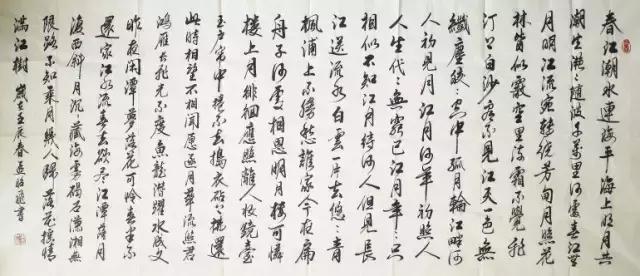 春江潮水連海平海上明月共
潮生灔々隨波千萬里何處春江無
月明江流宛轉繞芳甸月照花
林皆似霰空里流霜不覺飛
汀上白沙看不見江天一色無
纖塵皎々空中孤月輪江畔何
人初見月江月何年初照人
人生代々無窮已江月年々只
相似不知江月待何人但見長
江送流水白雲一片去悠々青
楓浦上不勝愁誰家今夜扁
舟子何處相思明月樓可憐
樓上月徘徊應照離人妝鏡臺
玉户帘中捲不去搗衣砧上拂還
此時相望不相聞願逐月華流照君
鴻雁長飛光不度魚龍潛躍水成文
昨夜閑潭夢落花可憐春半不
還家江水流春去欲盡江潭落月
復西斜月沉々藏海霧碣石瀟湘無
限路不知乘月幾人歸落花摇情
滿江樹 歲在壬辰春孟昭 書